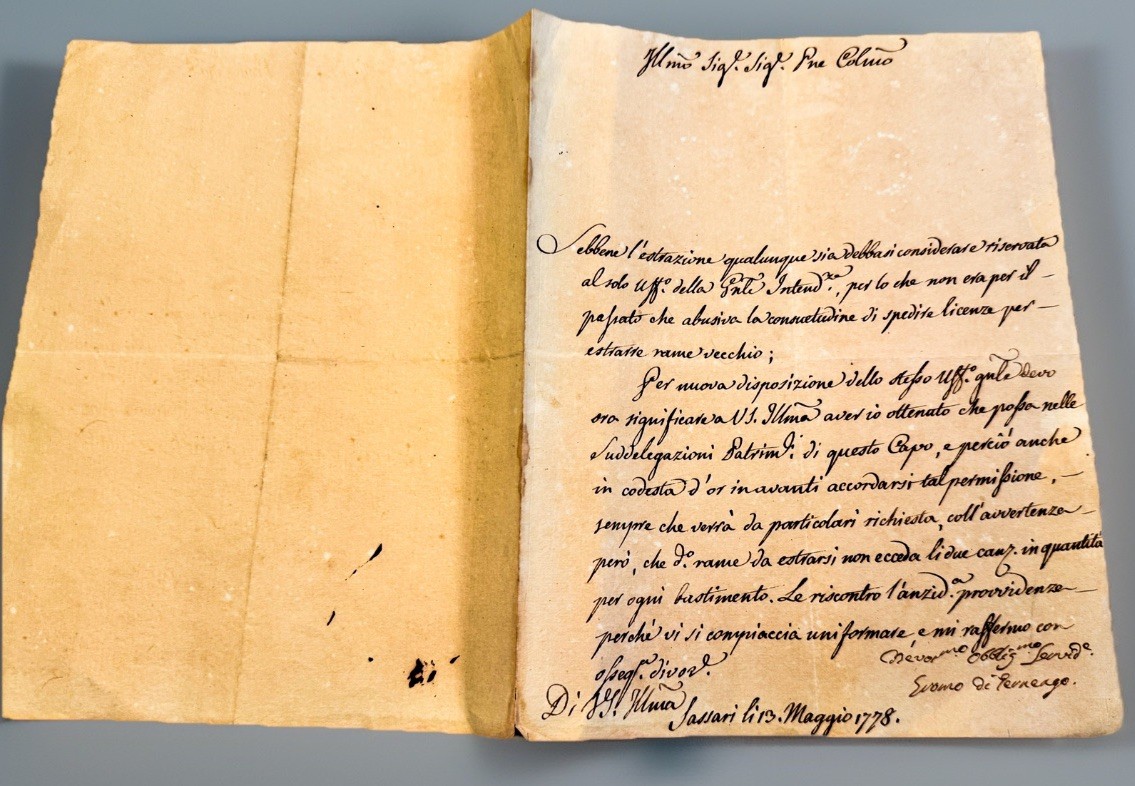 Illmõ Sigr. Sigr. Pne Colmõ
Sebbene l'estrazione qualunque sia debbasi considerare riservata
al solo Uffo. della Gnle Intendza., per lo che non era per il –
passato che abusiva la consuetudine di spedire licenze per –
estrarre rame vecchio;
Per nuova disposizione dello stesso Uffo. gnle devo
ora significare a VS. Illmã aver io ottenuto che possa nelle
Suddelegazioni Patrimli. di questo Capo, e perciò anche
in codesta d'or in avanti accordarsi tal permissione, –
sempre che verrà da particolari richiesta, coll'avvertenza –
però, che do. rame da estrarsi non ecceda li due canz. in quantità
per ogni bastimento. Le riscontro l'anzida. provvidenza –
perché vi si compiaccia uniformare, e mi raffermo con
ossequ. divozr.
Devormo Obbligmo Servide.
di
Di VS. Illmã
Sassari li 13. Maggio 1778.